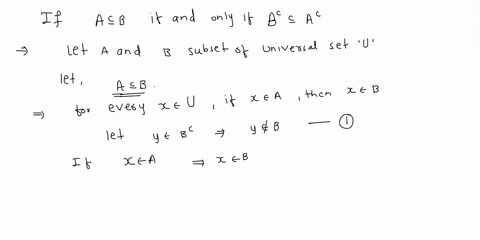 If A ⊆ B if and only if Bᶜ ⊆ Aᶜ
⇒ Let A and B subset of universal set 'U'
let, A ⊆ B.
⇒ for every x ∈ U, if x ∈ A, then x ∈ B
let y ∈ Bᶜ ⇒ y ∉ B — ①
If x ∈ A ⇒ x ∈ B